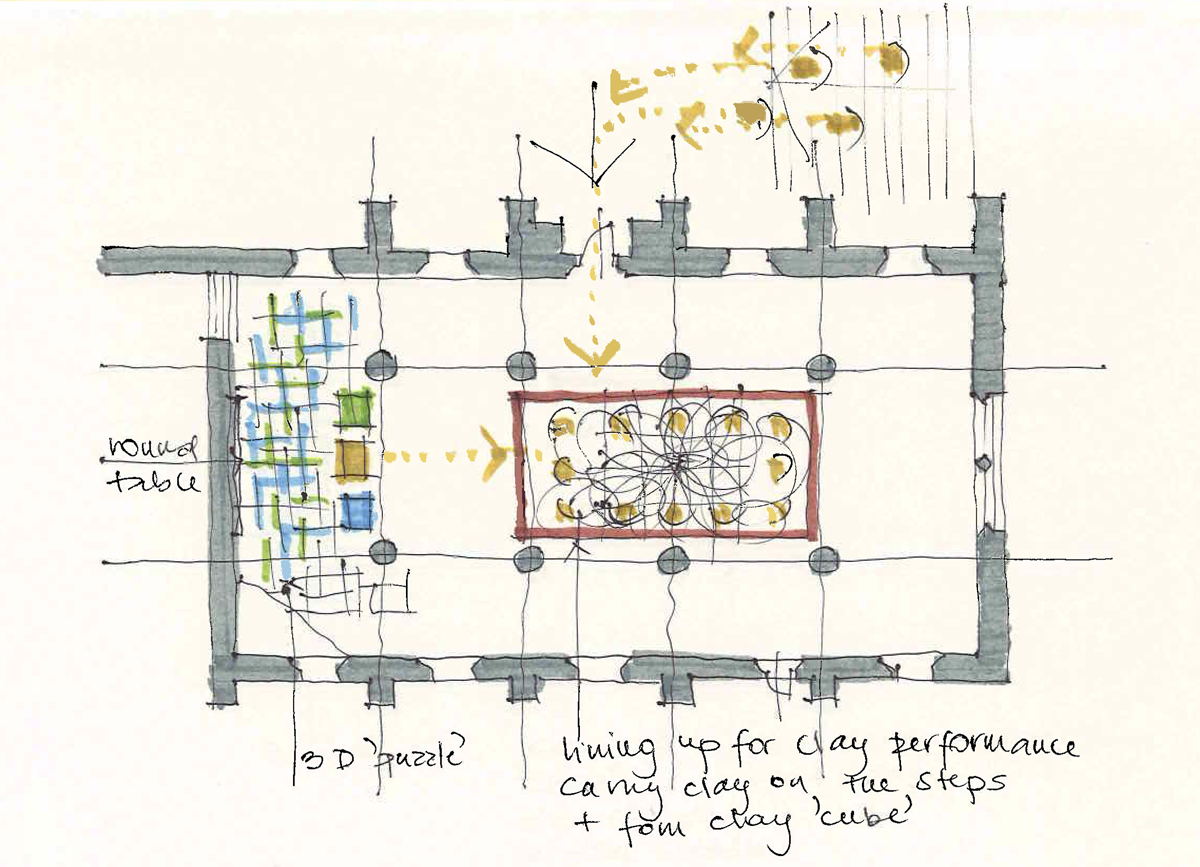 round
table
3D 'puzzle'
lining up for clay performance
carry clay on the steps
+ form clay 'cube'